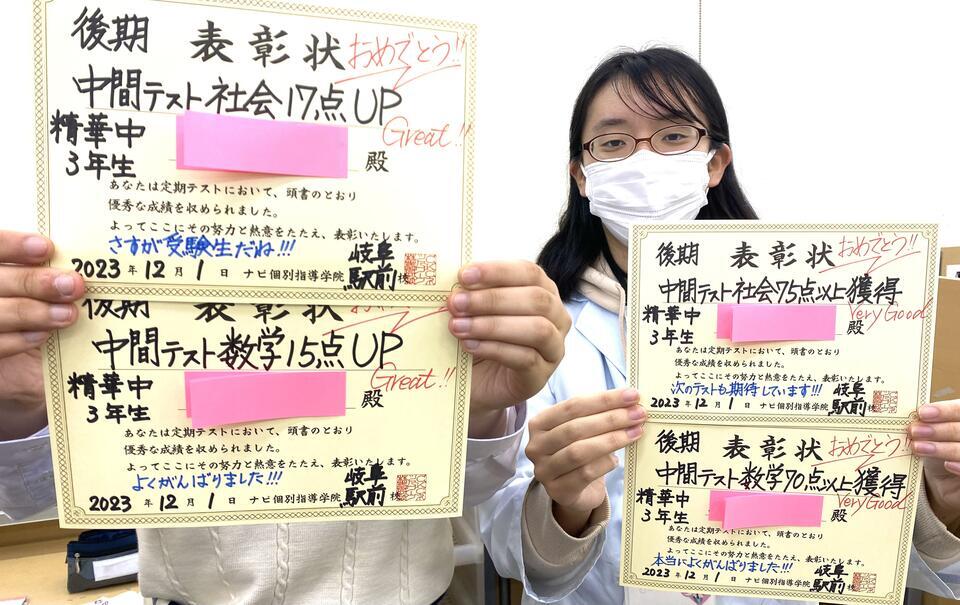 後期 表彰状 おめでとう!!
中間テスト社会17点UP
Great!!
精華中
3年生
殿
あなたは定期テストにおいて、頭書のとおり
優秀な成績を収められました。
よってここにその努力と熱意をたたえ、表彰いたします。
さすが受験生だね!!!
2023年12月1日 ナビ個別指導学院 岐阜駅前校
後期 表彰状
中間テスト数学15点UP
Great!!
精華中
3年生
殿
あなたは定期テストにおいて、頭書のとおり
優秀な成績を収められました。
よってここにその努力と熱意をたたえ、表彰いたします。
よくがんばりました!!!
2023年12月1日 ナビ個別指導学院 岐阜駅前校
後期 表彰状 おめでとう!!
中間テスト社会75点以上獲得
Very Good
精華中
3年生
殿
あなたは定期テストにおいて、頭書のとおり
優秀な成績を収められました。
よってここにその努力と熱意をたたえ、表彰いたします。
次のテストも期待しています!!!
2023年12月1日 ナビ個別指導学院 岐阜駅前
後期 表彰状 おめでとう!!
中間テスト数学70点以上獲得
Very Good
精華中
3年生
殿
あなたは定期テストにおいて、頭書のとおり
優秀な成績を収められました。
よってここにその努力と熱意をたたえ、表彰いたします。
本当によくがんばりました!!!
2023年12月1日 ナビ個別指導学院 岐阜駅前